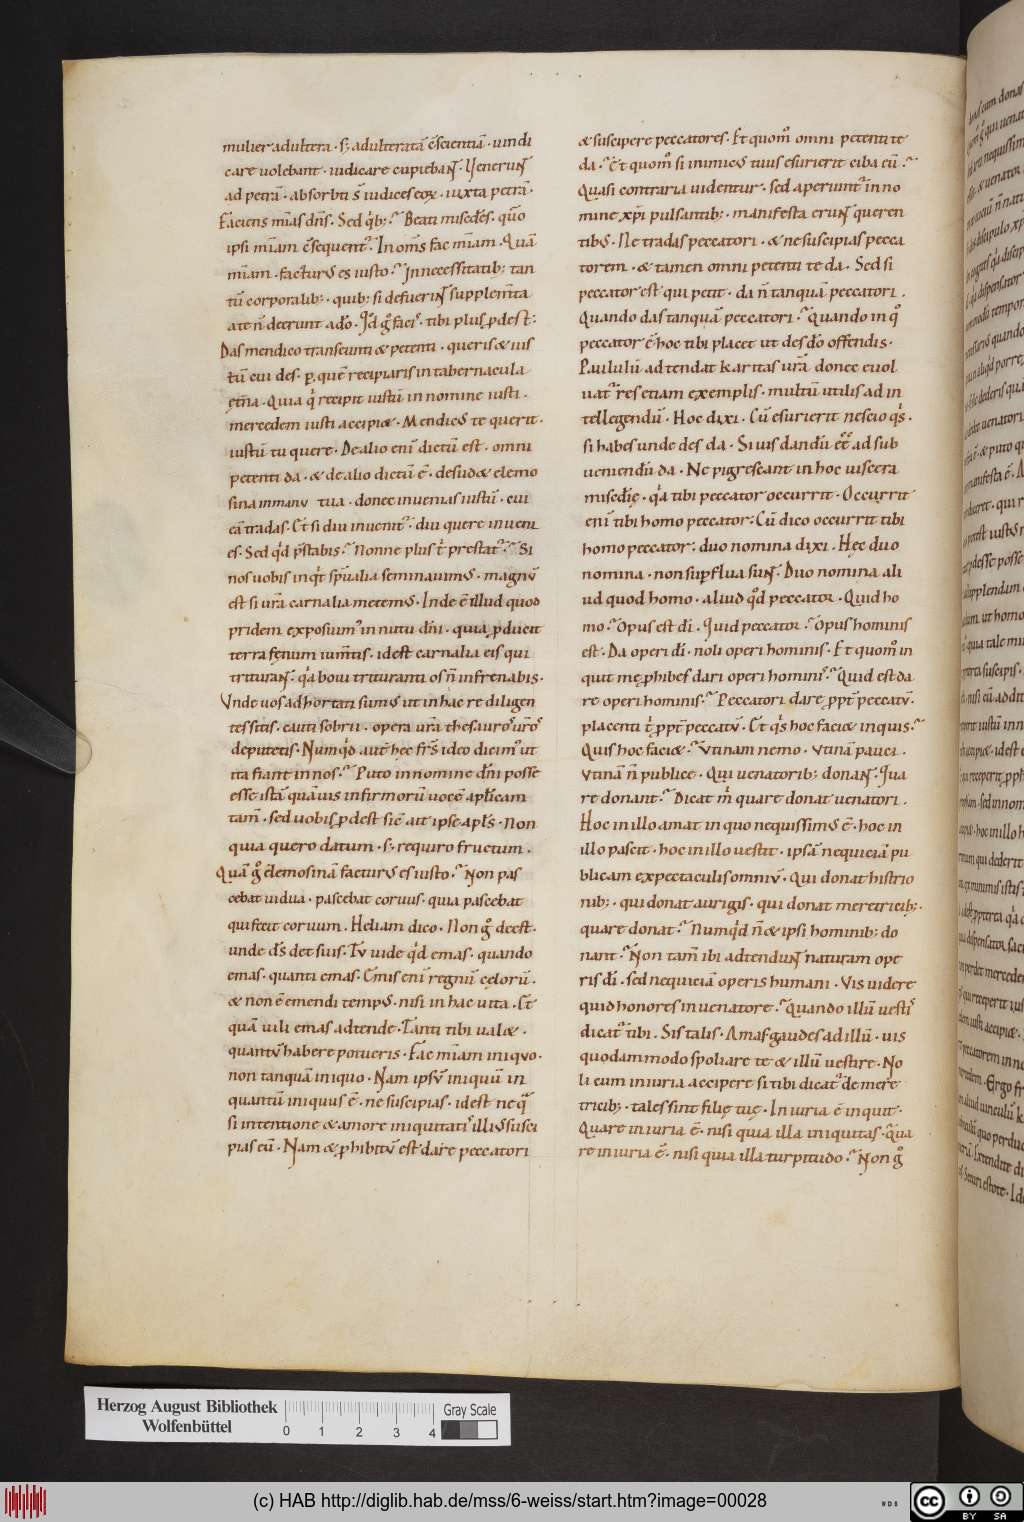 mulier adultera · s; adulteratā c̄scientiā · uindi
care uolebant · iudicare cupiebaɴ̄ · Veneruɴ̄
ad petrā · absorbti s̄ iudices eoꝝ · iuxta petrā ·
Faciens mīas dn̄s · Sed qͥb; · Beati miserd̄es · qm̄o
ipsi mīam c̄sequent᷑ · In om̄s fac mīam · Quā
mīam · facturꝰ es iusto · In necessitatib; tan
tū corporalib; · quib; si defuerıɴ̄ supplem̄ta
a te n̄ deerunt a dō · Id g̊ faci᷑ · tibi plus ꝓdest :
Das mendico transeunti & petenti · queris & ius
tū cui des · ꝑ quē recipiaris in tabernacula
ęt̄na · Quia qͥ recipit iustū in nomine iusti ·
mercedem iusti accipi& · Mendicꝰ te querit ·
iustū tu quere · De alio enī dictū est · omni
petenti da · & de alio dictū ē · desud& elemo
sina in manu tua · donec inuenias iustū · cui
eā tradas · Et si diu inuenit᷑ · diu quere inueni
es · Sed qͥd p̄stabis · Nonne plus t̄ prestat᷑ · Si
nos uobis inqͥt sp̄ualia seminauimꝰ · magnū
est si ur̄a carnalia metemꝰ · Inde ē illud quod
pridem exposuim᷑ in nutu dn̄i · quia ꝓducit
terra fęnum ium̄tis · id est carnalia eis qui
trituraɴ̄ · qͣa boui trituranti os n̄ infrenabis ·
Vnde uos adhortati sumꝰ ut in hac re diligen
tes sitis · cauti sobrii · opera ur̄a thesauroꝰ ur̄oꝰ
deputetis · Numqͥd aut̄ hęc fr̄s ideo dicim᷑ ut
ita fiant in nos · Puto in nomine dn̄i posse
esse istā quāuis infirmorū uocē apl̄icam
tam̄ · sed uobis ꝓdest sic̄ ait ipse apl̄s · Non
quia quero datum · s; requiro fructum ·
Quā g̊ elemosinā facturꝰ es iusto · Non pas
cebat uidua · pascebat coruus · quia pascebat
qui fecit coruum · Heliam dico · Non g̊ deest ·
unde ds̄ det suis · Tu uide qͥd emas · quando
emas · quanti emas · Emis enī regnū cęlorū ·
& non ē emendi tempꝰ · nisi in hac uita · Et
quā uili emas adtende · Tanti tibi ual& ·
quantū habere potueris · Fac mīam iniquo ·
non tanquā iniquo · Nam ipsū iniquū in
quantū iniquus ē · ne suscipias · id est ne qͣ
si intentione & amore iniquitati᷑ illiꝰ susci
pias eū · Nam & ꝓhibitū est dare peccatori
& suscipere peccatores · Et quom̊ omni petenti te
da · Et quom̊ si inimicꝰ tuus esurierit ciba eū ·
Quasi contraria uidentur · sed aperiunt᷑ in no
mine xp̄i pulsantib; · manifesta eruɴ̄ queren
tibꝰ · Ne tradas peccatori · & ne suscipias pecca
torem · & tamen omni petenti te da · Sed si
peccator est qui petit · da n̄ tanquā peccatori ·
Quando das tanquā peccatori · Quando in qͦ
peccator ē hoc tibi placet ut des do offendis ·
Paululū adtendat karitas ur̄a donec euol
uat᷑ res etiam exemplis · multū utilis ad in
tellegendū · Hoc dixi · Cū esurierit nescio qͥs ·
si habes unde des da · Si uis dandū eē ad sub
ueniendū da · Ne pigrescant in hoc uiscera
miscd̄ię · qͣa tibi peccator occurrit · Occurrit
enī tibi homo peccator : Cū dico occurrit tibi
homo peccator : duo nomina dixi · Hęc duo
nomina · non supflua suɴ̄ · Duo nomina ali
ud quod homo · aliud qͦd peccator · Quid ho
mo · Opus est dī · Quid peccator · Opus hominis
est · Da operi dī · noli operi hominis · Et quom̊ in
quit me ꝓhibes dari operi homini᷑ · Quid est da
re operi hominis · Peccatori dare ꝓpt̄ peccatū ·
placenti t̄ ꝓpt̄ peccatū · Et qͥs hoc faci& inquis ·
Quis hoc faci& · Vtinam nemo · Vtinā pauci ·
Vtinā n̄ publice · Qui uenatorib; donaɴ̄ · Qua
re donant · Dicat m̄ quare donat uenatori ·
Hoc in illo amat in quo nequissimꝰ ē · hoc in
illo pascit · hoc in illo uestit · ipsā nequiciā pu
blicam expectaculis omniū · Qui donat histrio
nib; · qui donat aurigis · qui donat meretricib; ·
quare donat · Numqͥd n̄ & ipsi hominib; do
nant · Non tam̄ ibi adtenduɴ̄ naturam ope
ris dī · sed nequiciā operis humani · Vis uidere
quid honores in uenatore · Quando illū uesti᷑
dicat᷑ tibi · Sis talis · Amas gaudes ad illū · uis
quodammodo spoliare te & illū uestire · No
li eum iniuria accipere si tibi dicat᷑ de mere
tricib; · tales sint filię tuę · Iniuria ē inquit ·
Quare iniuria ē · nisi quia illa iniquitas · Qua
re iniuria ē · nisi quia illa turpitudo · Non g̊
Herzog August Bibliothek
Wolfenbüttel
0 1 2 3 4
Gray Scale
(c) HAB http://diglib.hab.de/mss/6-weiss/start.htm?image=00028
cc BY SA